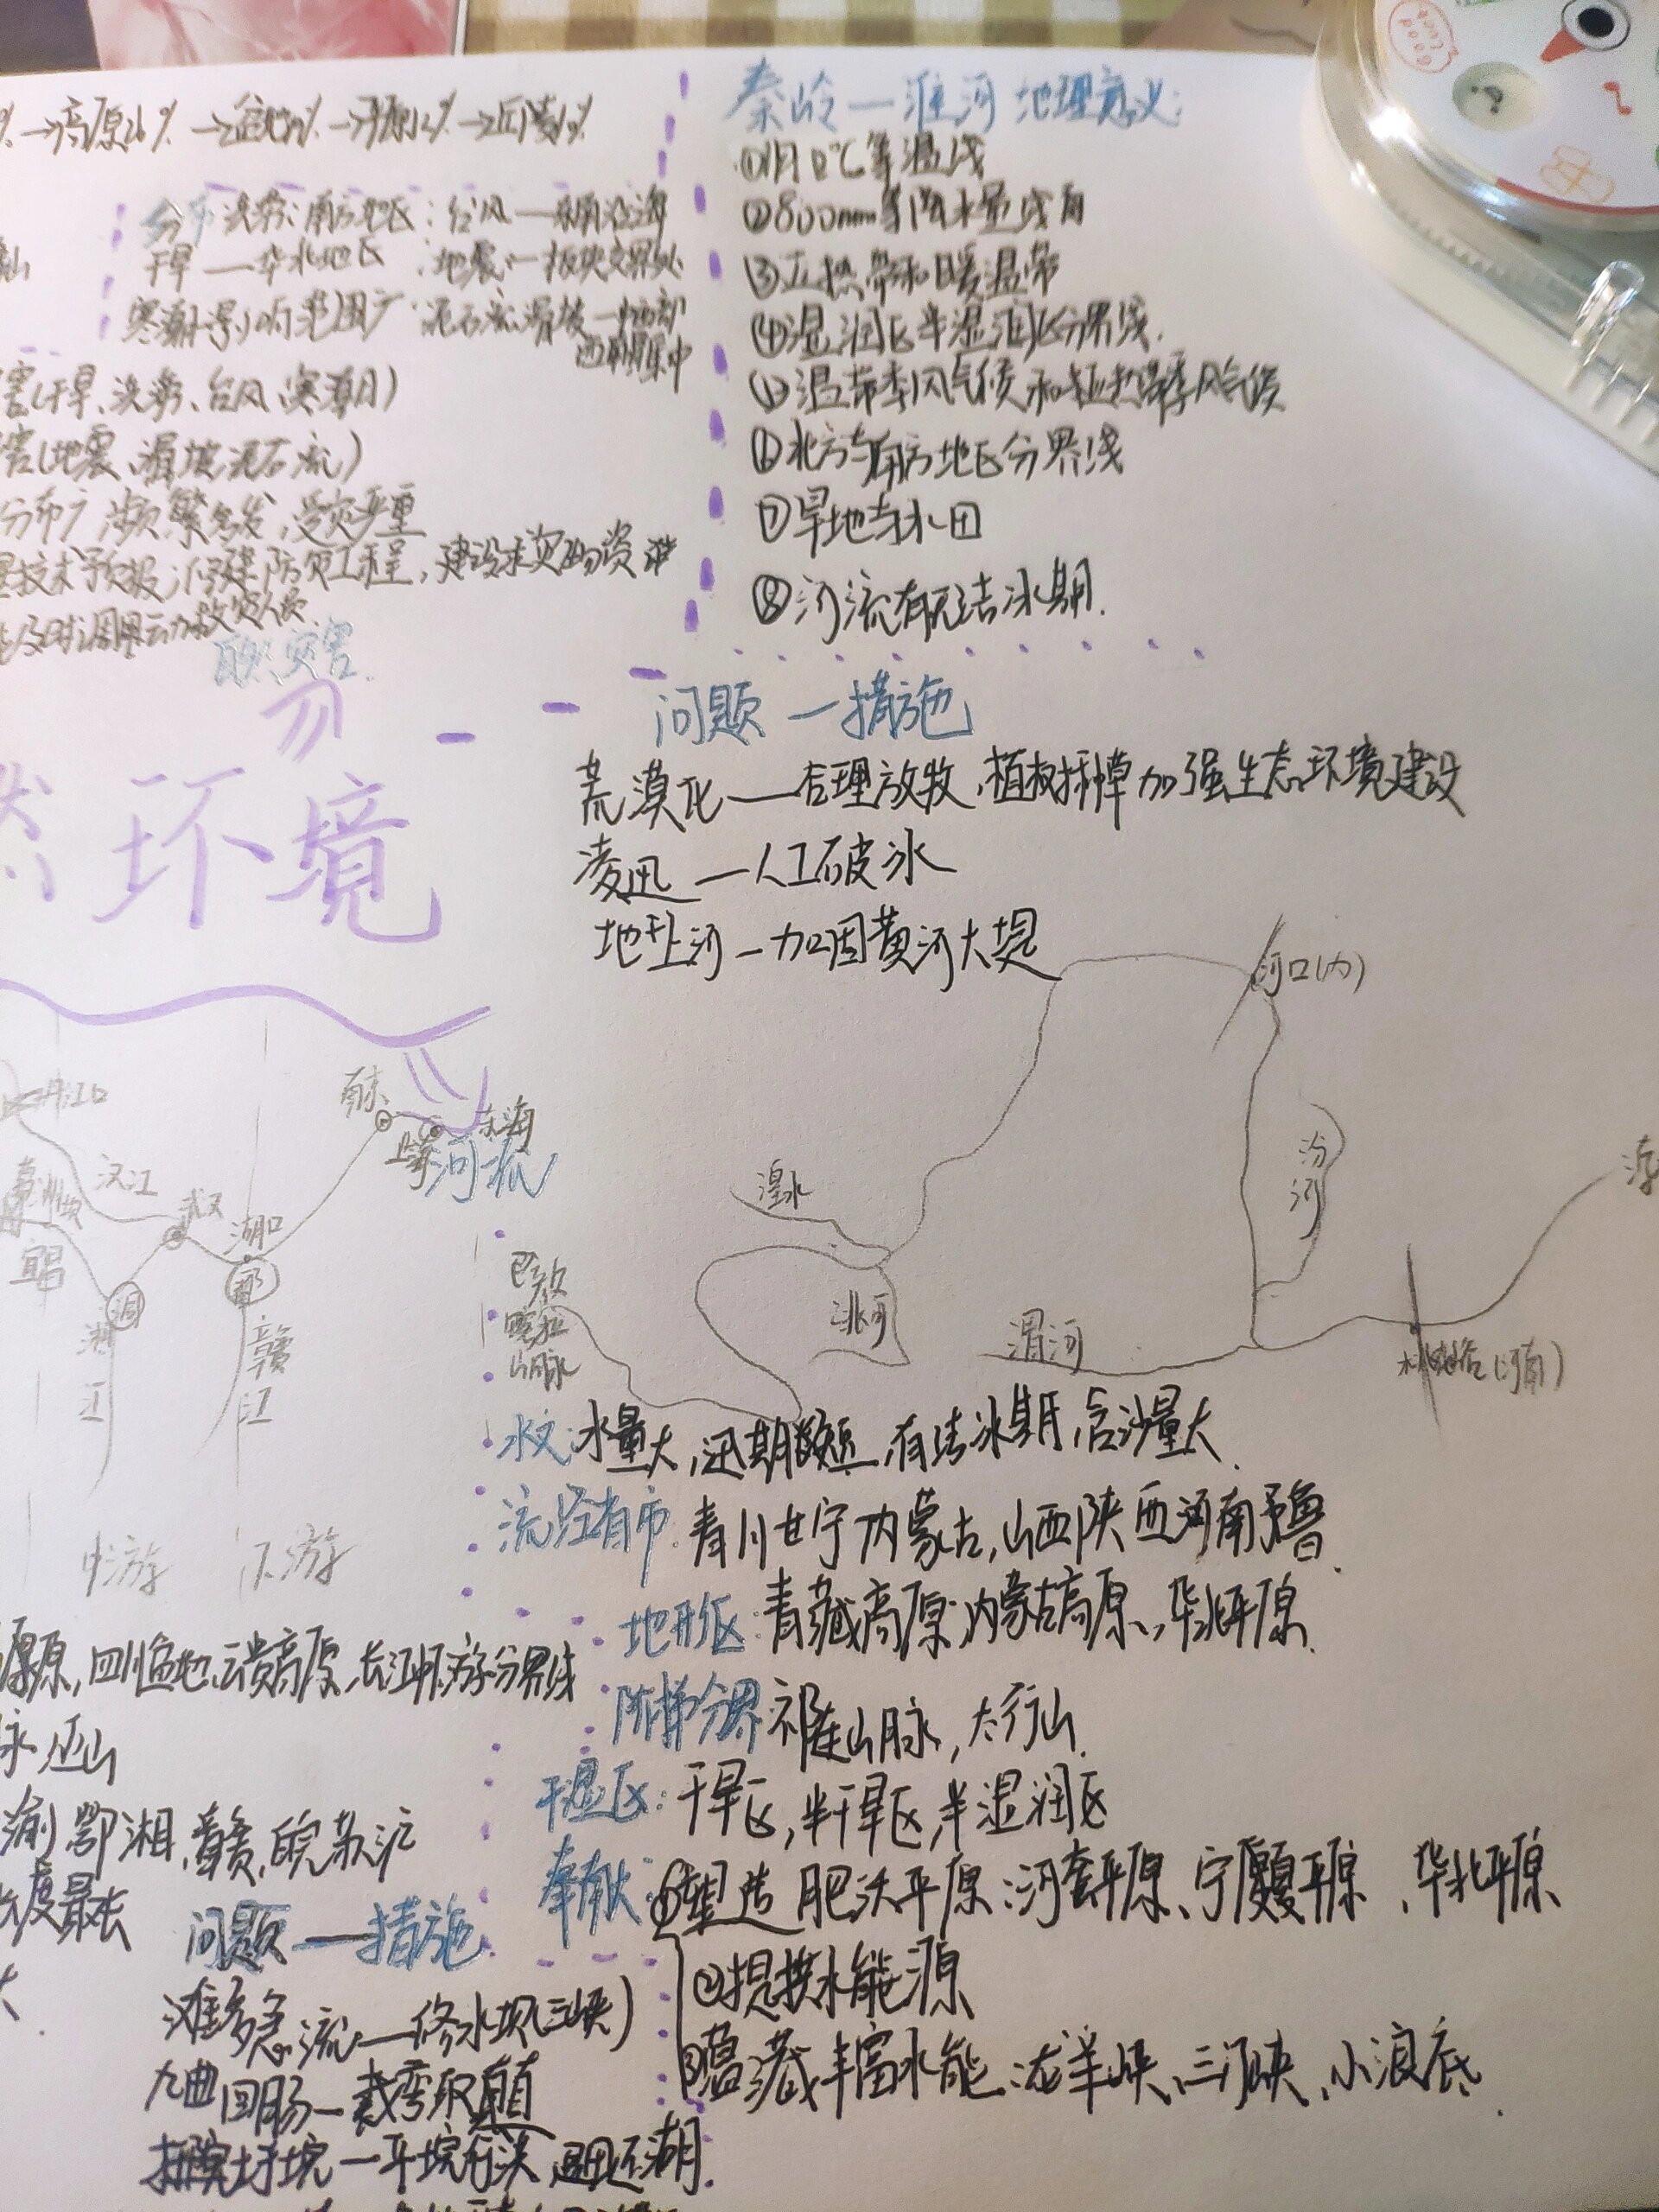 →高原26% →盆地19% →平原12% →丘陵10%
分布 洪涝:南方地区:台风—东南沿海
干旱—华北地区 :地震:—板块交界处
寒潮:影响范围广 泥石流、滑坡—
西南集中
害(干旱、洪涝、台风、寒潮)
害(地震、滑坡泥石流)
分布广 频繁多发,受灾严重
技术预报,修建防灾工程,建设救灾物资
及时调动救灾人员.
自然灾害.
秦岭—淮河 地理意义:
①1月0℃等温线
②800mm等降水量线
③亚热带和暖温带
④湿润区半湿润区分界线.
⑤温带季风气候和亚热带季风气候
⑥北方与南方地区分界线
⑦旱地与水田
⑧河流有无结冰期.
然环境
问题—措施
荒漠化—合理放牧,植树种草加强生态环境建设
凌汛—人工破冰
地上河—加固黄河大堤
河口(内)
汾河
湟水
洮河
渭河
巴颜
喀拉
山脉
丹江口
汉江
武汉
宜昌
洞
湘江
湖口
鄱
赣江
南京
上海
东海
中游
下游
河流
水文:水量大,汛期短,有结冰期,含沙量大.
流经省市.青川甘宁内蒙古,山西陕西河南鲁.
地形区:青藏高原,内蒙古高原,华北平原.
阶梯分界 祁连山脉,太行山.
干湿区:干旱区,半干旱区,半湿润区
奉献:①塑造肥沃平原:河套平原、宁夏平原、华北平原
②提供水能源
③蕴藏丰富水能:龙羊峡、三门峡、小浪底.
高原,四川盆地,云贵高原,长江中下游分界线
脉,巫山
渝)鄂湘,赣,皖苏沪
长度最长
大.
问题—措施
滩多急流—修水坝(三峡)
九曲回肠—裁弯取直
圩垸—平垸行洪 退田还湖.